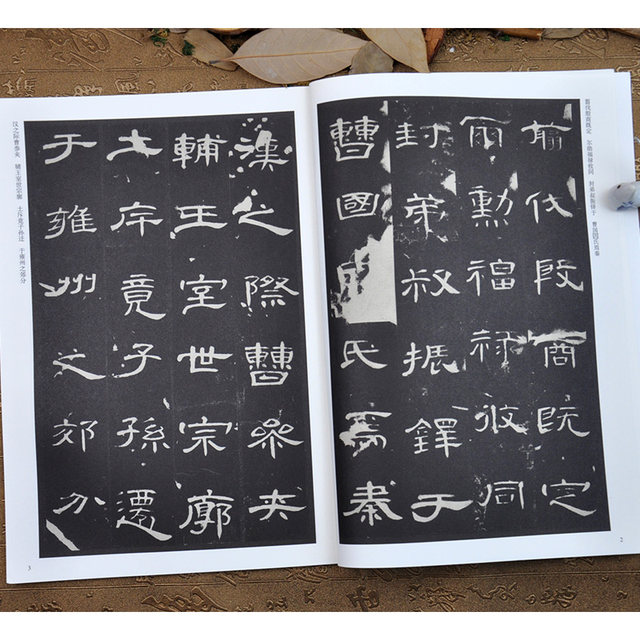 翦伐殷商既定 尔勋福禄攸同 封弟叔振铎于 曹国因氏焉秦
翦伐殷商既定
爾勳福祿攸同
封弟叔振鐸于
曹國氏焉秦
2
漢之際曹參夾
輔王室世宗廓
土斥竟子孫遷
于雍州之郊分
汉之际曹参夹 辅王室世宗廓 土斥竟子孙迁 于雍州之郊分
3